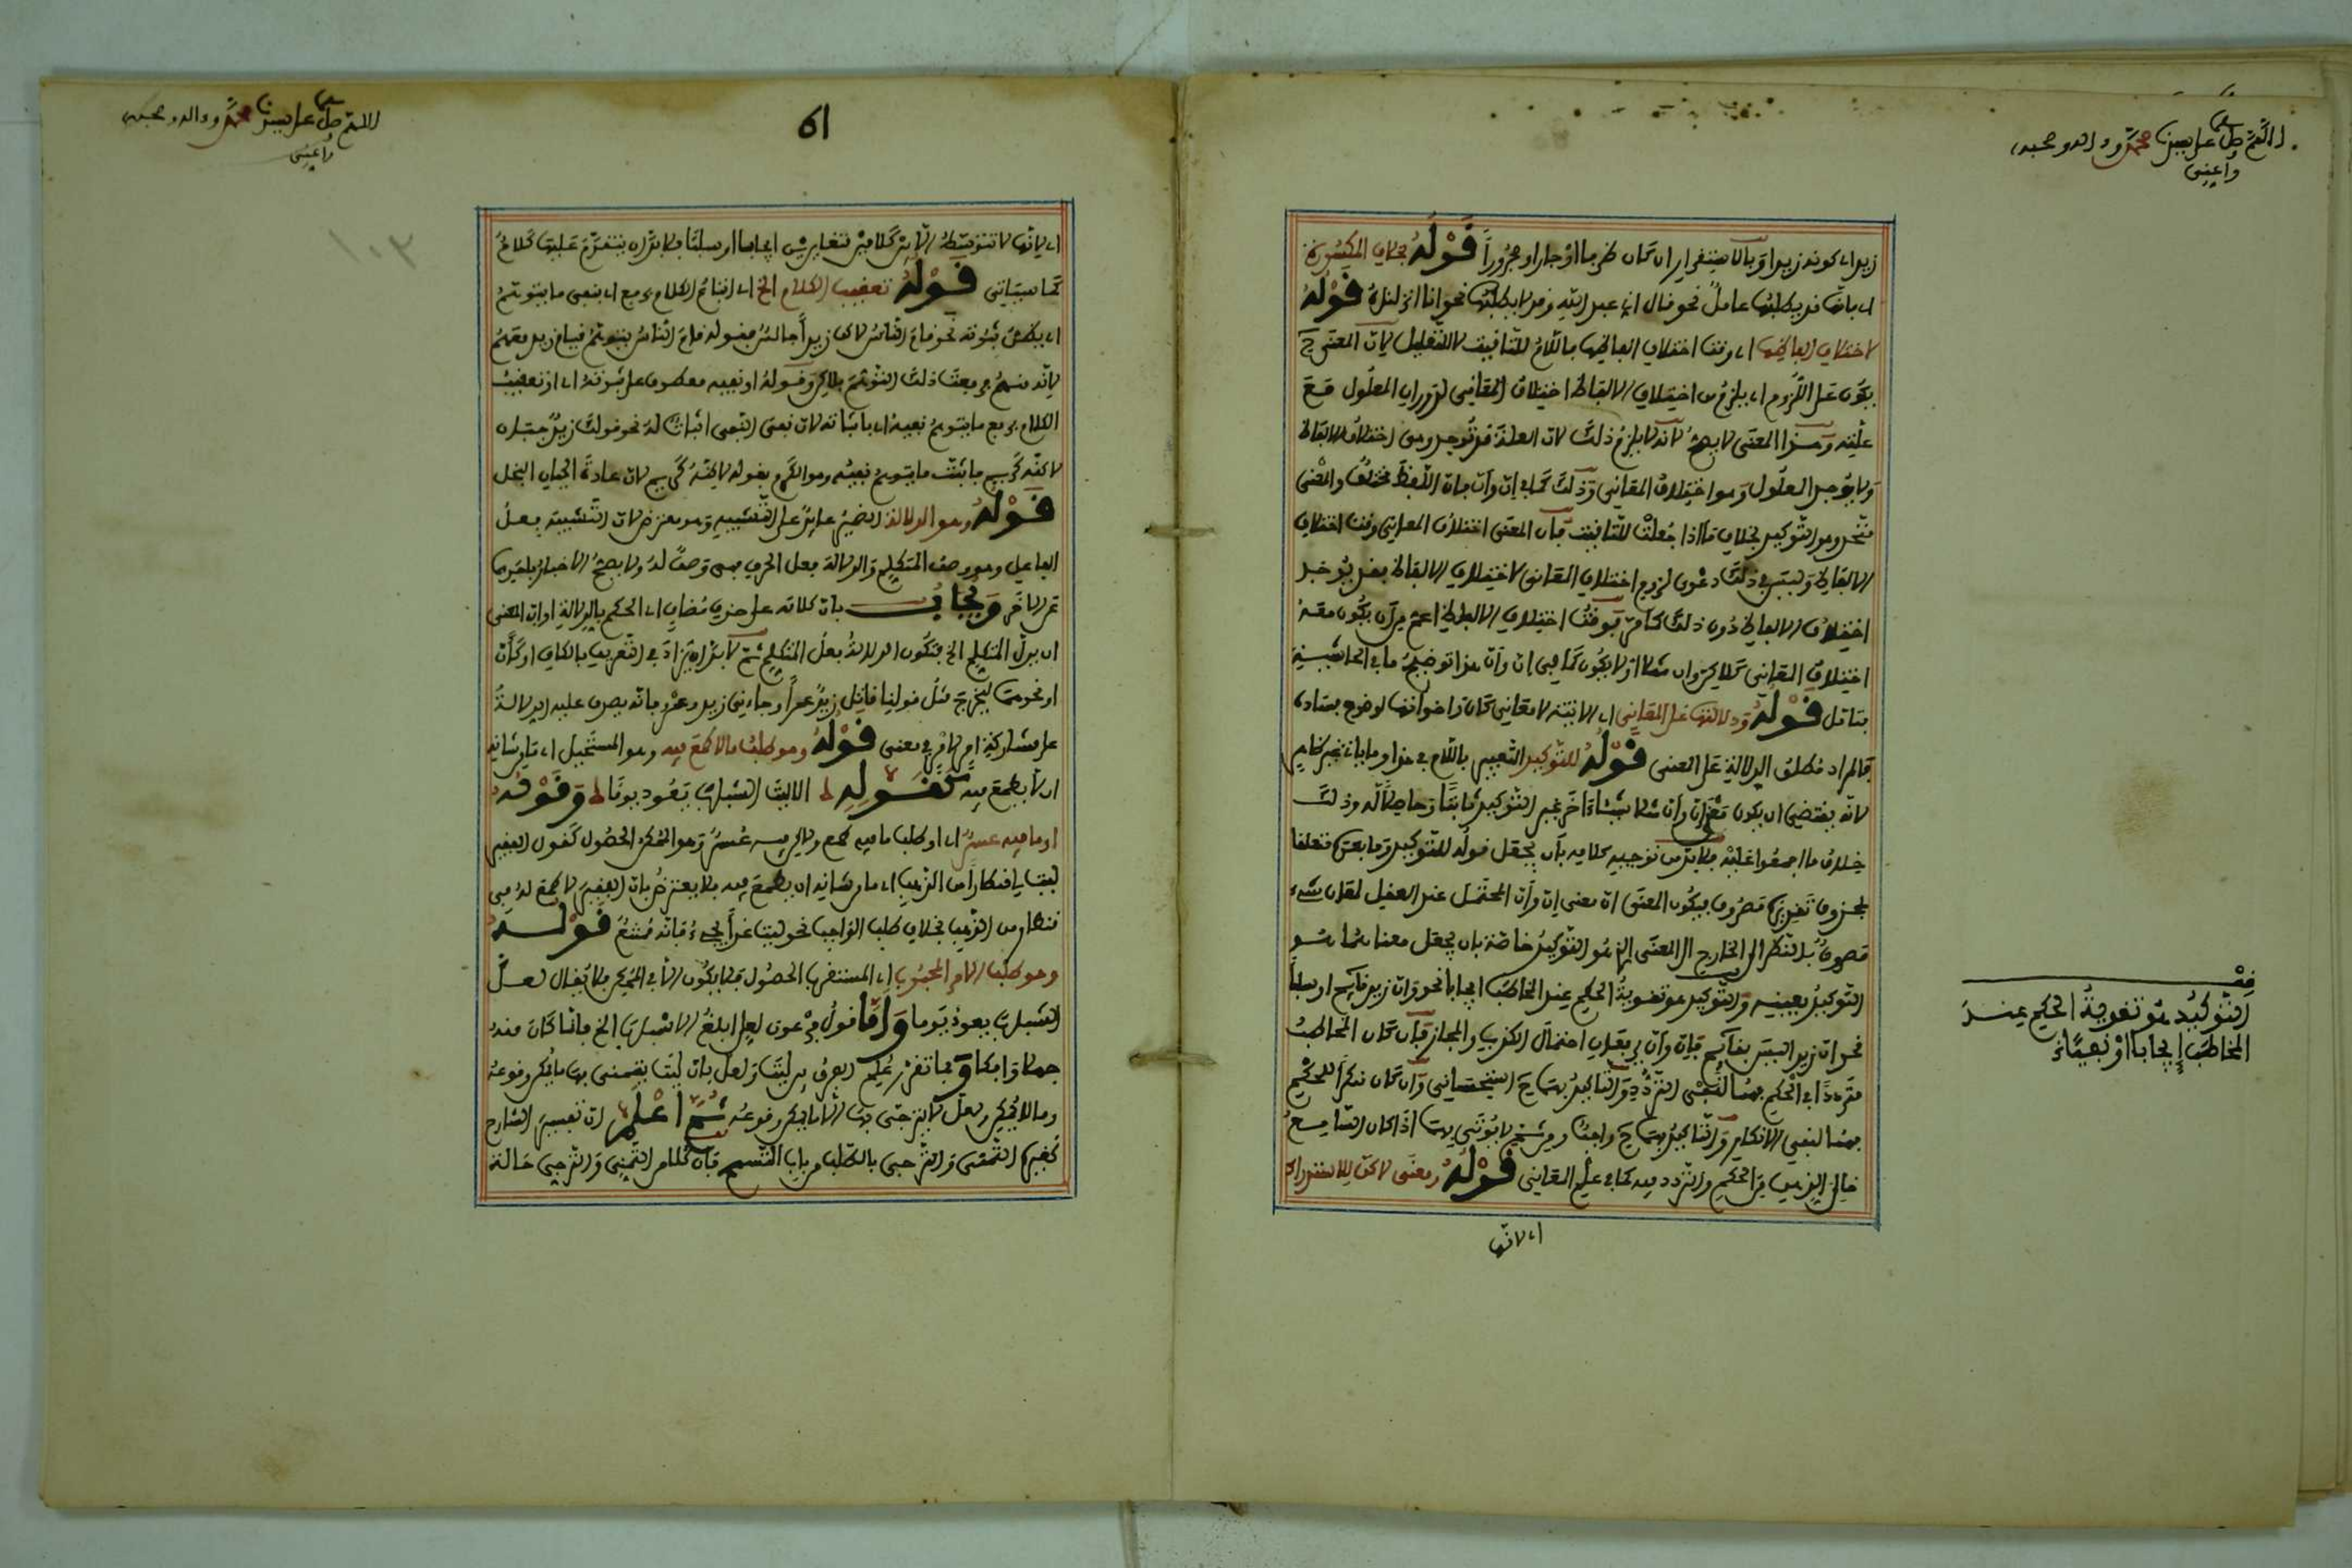 اللهم صل على سيدنا محمد وءاله وصحبه
وأعني
زيد اي كونه زيدا وبالاستقرار ان كان ظرفا او جارا ومجرورا قوله بخلاف المكسورة
اي بانها قد يطلبها عامل نحو قال اني عبد الله وقد لا يطلبها نحو انا انزلناه قوله
لاختلاف الفاظها اي وقت اختلاف الفاظها فاللام للتاقيت لا للتعليل لان المعنى ح
يكون على اللزوم اي يلزم من اختلاف الالفاظ اختلاف المعاني لدوران المعلول مع
علته وهذا المعنى لا يصح لانه لا يلزم ذلك لان العلة قد توجد وهي اختلاف الالفاظ
ولا يوجد المعلول وهو اختلاف المعاني وذلك كما في ان وأن فان اللفظ مختلف والمعنى
متحد وهو التوكيد بخلاف ما اذا جعلت للتاقيت فان المعنى اختلاف المعاني وقت اختلاف
الالفاظ وليس في ذلك دعوى لزوم اختلاف المعاني لاختلاف الالفاظ فقد يوجد
اختلاف الالفاظ دون ذلك كما مر فوقت اختلاف الالفاظ اعم من ان يكون معه
اختلاف المعاني كلاكن وان مثلا او لا يكون كما في ان وأن هذا توضيح ما في الحاشية
فتامل قوله ودلالتها على المعاني اي الاتية لا معاني كان واخواتها لوضوح فساده
فالمراد مطلق الدلالة على المعنى قوله للتوكيد التعبير باللام في هذا وما ياتي غير ظاهر
لانه يقتضي ان يكون معنى ان وأن مثلا شيئا ءاخر غير التوكيد ثابتا وحاصلا له وذلك
خلاف ما اجمعوا عليه فلا بد من توجيه كلامه بان يجعل قوله للتوكيد وما بعده متعلقا
بمحذوف تقديره مصروف فيكون المعنى ان معنى ان وأن المحتمل عند العقل لغير شيء
مصروف بالنظر الى الخارج الى المعنى الذي هو التوكيد خاصة بان يجعل معناهما هو
التوكيد بعينه والتوكيد هو تقوية الحكم عند المخاطب ايجابا نحو ان زيدا قايم او سلبا
نحو ان زيدا ليس بقائم فان وأن يرفعان احتمال الكذب والمجاز فان كان المخاطب
مترددا في الحكم فهما لنفي التردد والتاكيد بهما ح استحساني وان كان منكرا للحكم
فهما لنفي الانكار والتاكيد بهما ح واجب ومن ثم لا يوتى بهما اذا كان السامع
خالي الذهن من الحكم والتردد فيه كما في علم المعاني قوله ومعنى لاكن للاستدراك
اي لانها
فف
التوكيد هو تقوية الحكم عند
المخاطب إيجابا او نفيا
اللهم صل على سيدنا محمد وءاله وصحبه
وأعني
61
١٠٣
اي لانها لا تتوسط الا بين كلامين متغايرين ايجابا او سلبا فلا بد ان يتقدم عليها كلام
كما سياتي قوله تعقيب الكلام الخ اي اتباع الكلام برفع اي بنفي ما يتوهم
اي يظن ثبوته نحو قام الناس لاكن زيدا جالس فبقوله قام الناس يتوهم قيام زيد معهم
لانه منهم فرفعت ذلك التوهم بلاكن وقوله او نفيه معطوف على ثبوته اي او تعقيب
الكلام برفع ما يتوهم نفيه اي باثباته لان نفي النفي اثبات له نحو قولك زيد جبان
لاكنه كريم فاثبت ما يتوهم نفيه وهو الكرم بقوله لاكنه كريم لان عادة الجبان البخل
قوله وهو الدلالة الضمير عايد على التشبيه وهو معترض لان التشبيه فعل
الفاعل وهو وصف المتكلم والدلالة فعل الحرف فهي وصف له ولا يصح الاخبار باحدهما
عن الاخر ويجاب بان كلامه على حذف مضاف اي الحكم بالدلالة او ان المعنى
ان يدل المتكلم الخ فتكون الدلالة فعل المتكلم ثم لا بد ان يزاد في التعريف بالكاف او كأن
او نحوهما ليخرج مثل قولنا قاتل زيد عمرا وجاءني زيد وعمرو فانه يصدق عليه الدلالة
على مشاركة امر لامر في معنى قوله وهو طلب ما لا طمع فيه وهو المستحيل اي ما من شانه
ان لا يطمع فيه كقوله الا ليت الشباب يعود يوما وقوله
او ما فيه عسر اي او طلب ما فيه طمع ولاكن فيه عسر وهو الممكن الحصول كقول الفقير
ليت لي قنطارا من الذهب اي ما من شانه ان يطمع فيه فلا يعترض بان الفقير لا طمع له في
قنطار من الذهب بخلاف طلب الواجب نحو ليت غدا يجيء فانه ممتنع قوله
وهو طلب الامر المحبوب اي المستقرب الحصول فلا يكون الا في الممكن فلا يقال لعل
الشباب يعود يوما وأما قول فرعون لعلي ابلغ الاسباب الخ فانما كان منه
جهلا وافكا وبما تقرر علم الفرق بين ليت ولعل بان ليت يتمنى بها ما يمكن وقوعه
وما لا يمكن ولعل لا يترجى بها الا ما يمكن وقوعه ثم اعلم ان تفسير الشارح
كغيره التمني والترجي بالطلب من باب التسمح فان كلا من التمني والترجي حالة